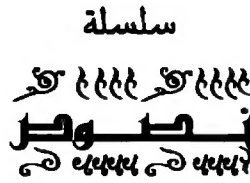 سلسلة
نصوص